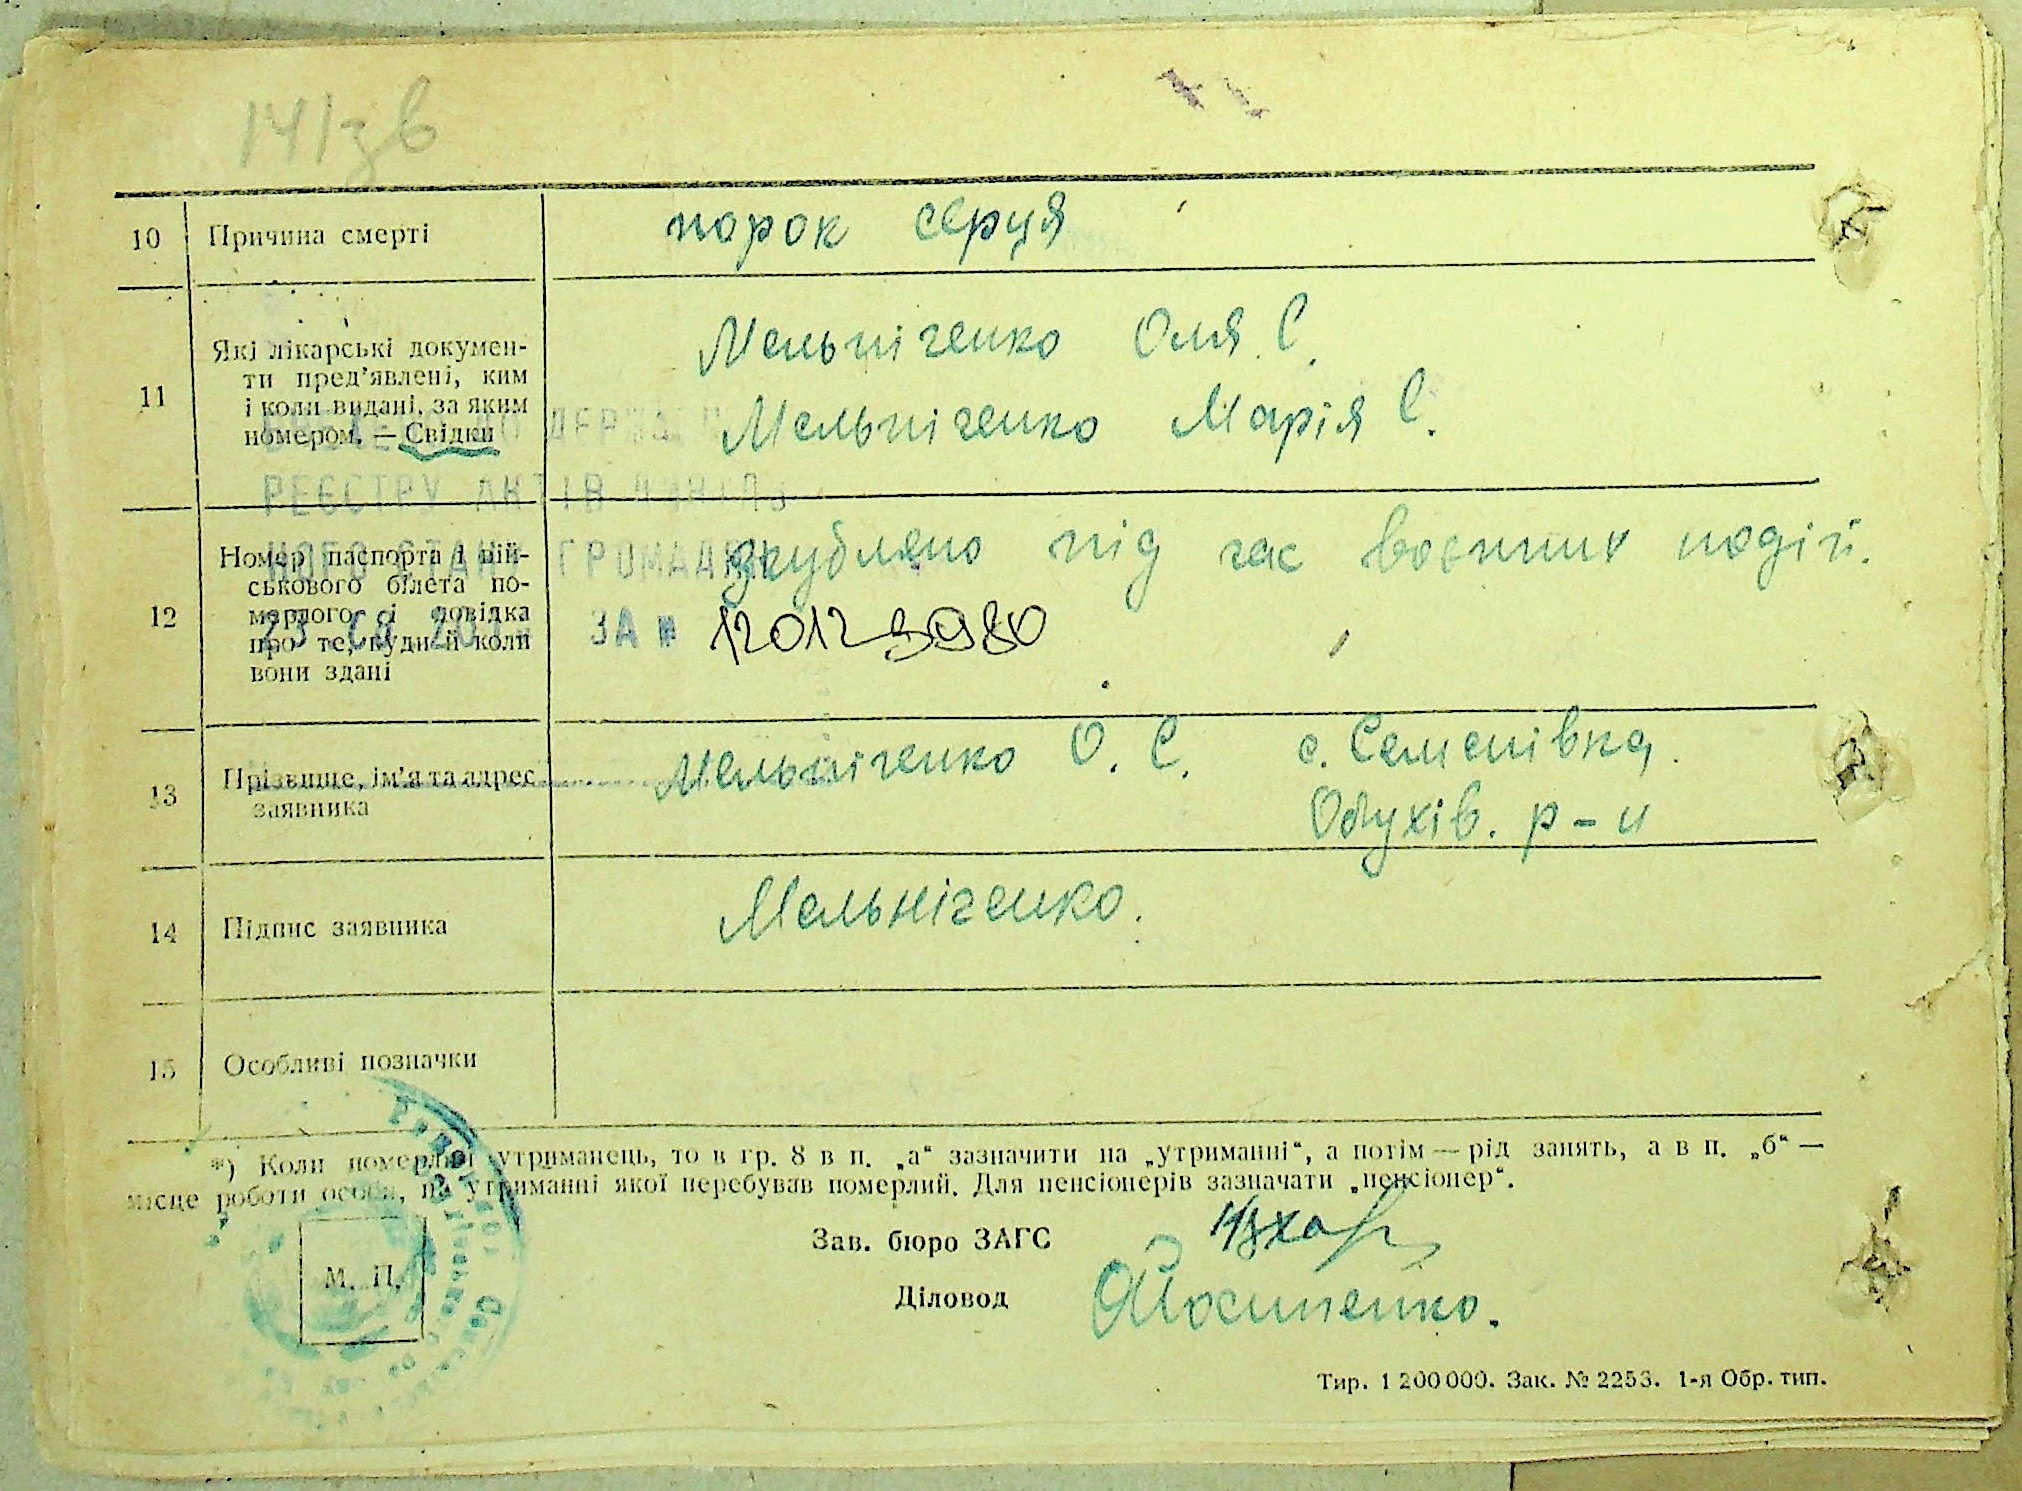 141зв
10 Причина смерті порок серця
Мельніченко Оля С.
Які лікарські документи
ти пред'явлені, ким
11 і коли видані, за яким
номером. — Свідки
Мельніченко Марія С.
РЕЄСТРУ АКТІВ
Номер паспорта і вій-
ськового білета по-
мерлого і довідка
12 про те, куди й коли
вони здані
згублено під час воєнних подій.
ГРОМАДЯН
ЗА № 120123980
Мельніченко О. С. с. Семенівка,
13 Прізвище, ім'я та адрес
заявника
Обухів. р-н
14 Підпис заявника Мельніченко.
15 Особливі позначки
*) Коли померлий утриманець, то в гр. 8 в п. „а“ зазначити на „утриманні“, а потім — рід занять, а в п. „б“ —
місце роботи особи, на утриманні якої перебував померлий. Для пенсіонерів зазначати „пенсіонер“.
Зав. бюро ЗАГС
М. П.
Діловод Йосипенко.
Тир. 1 200 000. Зак. № 2253. 1-я Обр. тип.